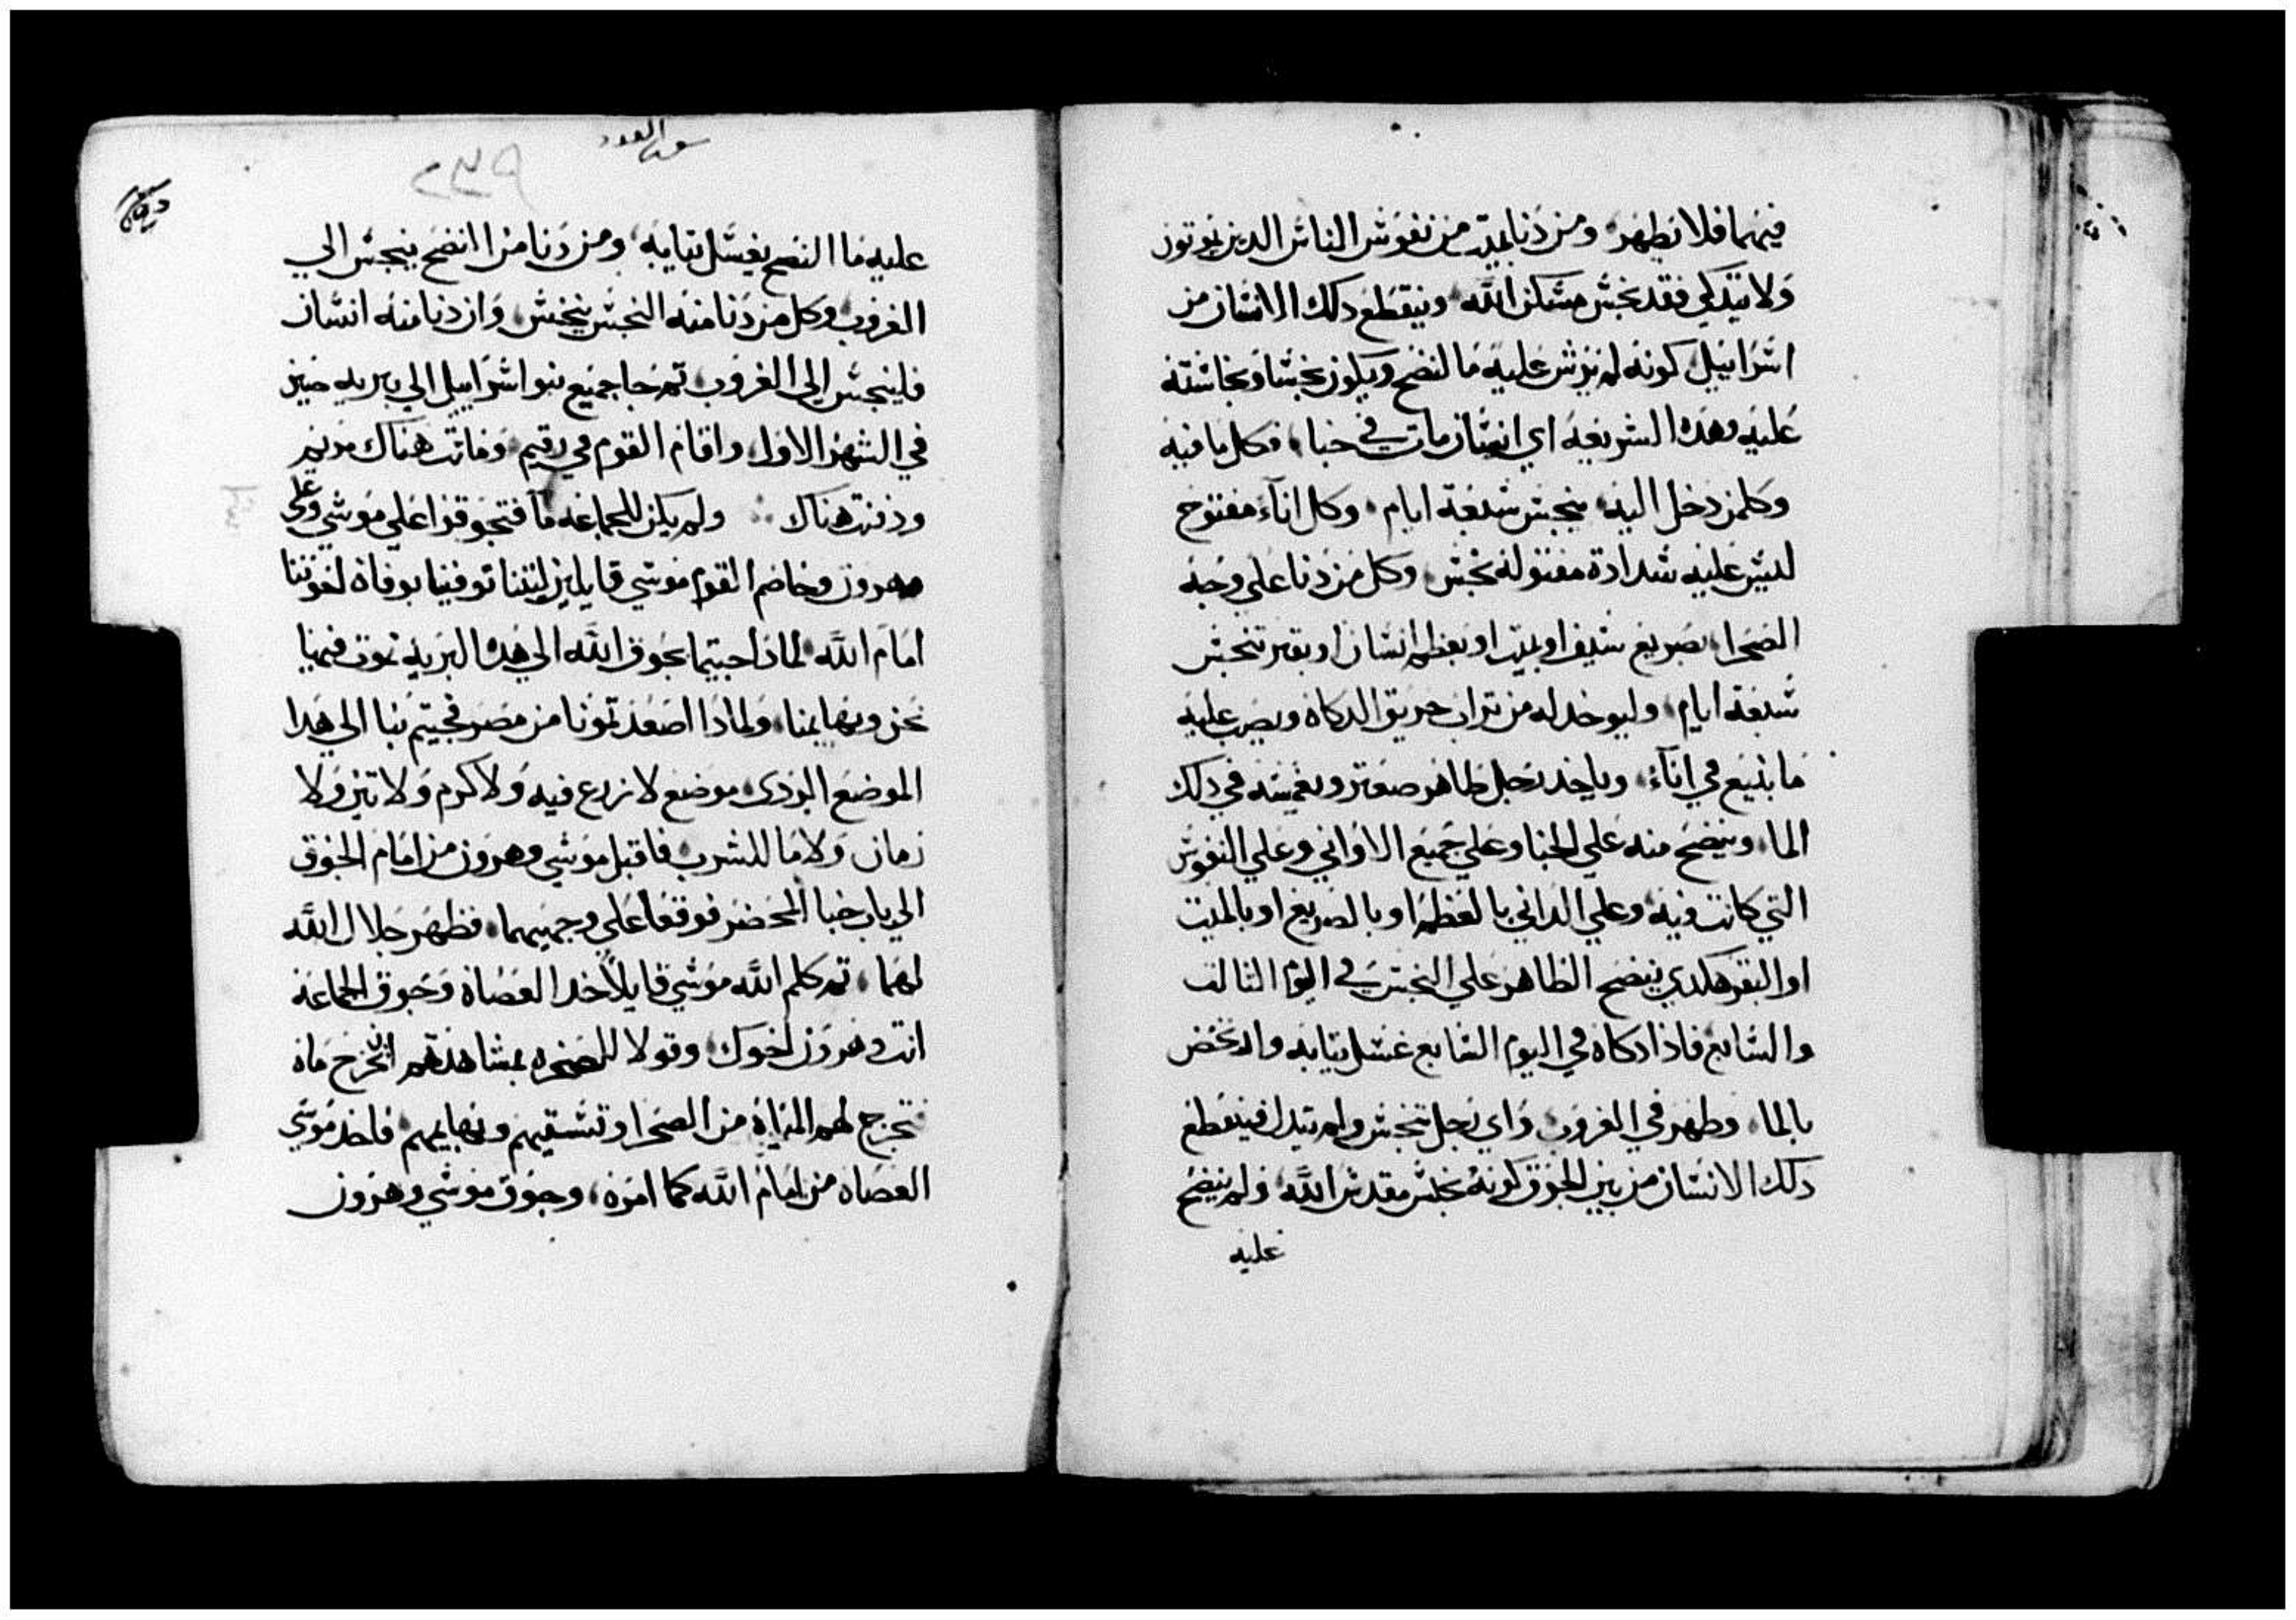 فيهما فلا يطهر ومن دنا بميت من نفوس الناس الدين يموتون
ولا يتدكي فقد نجس مسكن الله وينقطع دلك الانسان من
اسراييل كونه لم يرش عليه ما لنضح ويكون نجسا ونجاسته
عليه وهده الشريعه اي انسان مات في خبا فكل ما فيه
وكلمن دخل اليه ينجس سبعة ايام وكل اناء مفتوح
ليس عليه شدادة مفتوله نجس وكل من دنا علي وجه
الصحرا بصريع سيف او بميت او بعظم انسان او بقبر تنجس
سبعة ايام وليوخد له من تراب حريق الدكاه ويصب عليه
ما ينبع في اناء وياخد رجل طاهر صعتر ويغمسه في دلك
الما وينضح منه علي الخبا وعلي جميع الاواني وعلي النفوس
التي كانت فيه وعلي الداني بالعظم او بالصريع او بالميت
او القبر هكدي ينضح الطاهر علي النجس في اليوم التالت
والسابع فادا ادكاه في اليوم السابع غسل تيابه وارتحض
بالما وطهر في الغروب واي رجل تنجس ولم يتدك فينقطع
دلك الانسان من بين الجوق كونه نجس مقدس الله ولم ينضح
عليه
سفر العدد
٢٣٩
عليه ما النضح يغسل تيابه ومن دنا من ا انضح ينجس الي
الغروب وكل من دنا منه النجس ينجس وان دنا منه انسان
فلينجس الي الغروب تم جا جميع بنو اسراييل الي بريه صين
في الشهر الاول واقام القوم في رقيم وماتت هناك مريم
ودفنت هناك ولم يكن للجماعه ما فتجوقوا علي موسي وعلي
هرون وخاصم القوم موسي قايلين ليتنا توفينا بوفاة اخوتنا
امام الله لمادا جيتما بجوق الله الي هده البريه نموت فيها
نحن وبهايمنا ولمادا اصعدتمونا من مصر فجيتم بنا الي هدا
الموضع الردي موضع لا زرع فيه ولا كرم ولا تين ولا
رمان ولا ما للشرب فاقبل موسي وهرون من امام الجوق
الي باب خبا المحضر فوقعا علي وجهيهما فظهر جلال الله
لهما تم كلم الله موسي قايلا خد العصاة وجوق الجماعة
انت وهرون اخوك وقولا للصخره بمشاهدتهم ان تخرج ماه
تخرج لهم المياة من الصخرا وتسقيهم وبهايمهم فاخد موسي
العصاه من امام الله كما امره وجوق موسي وهرون